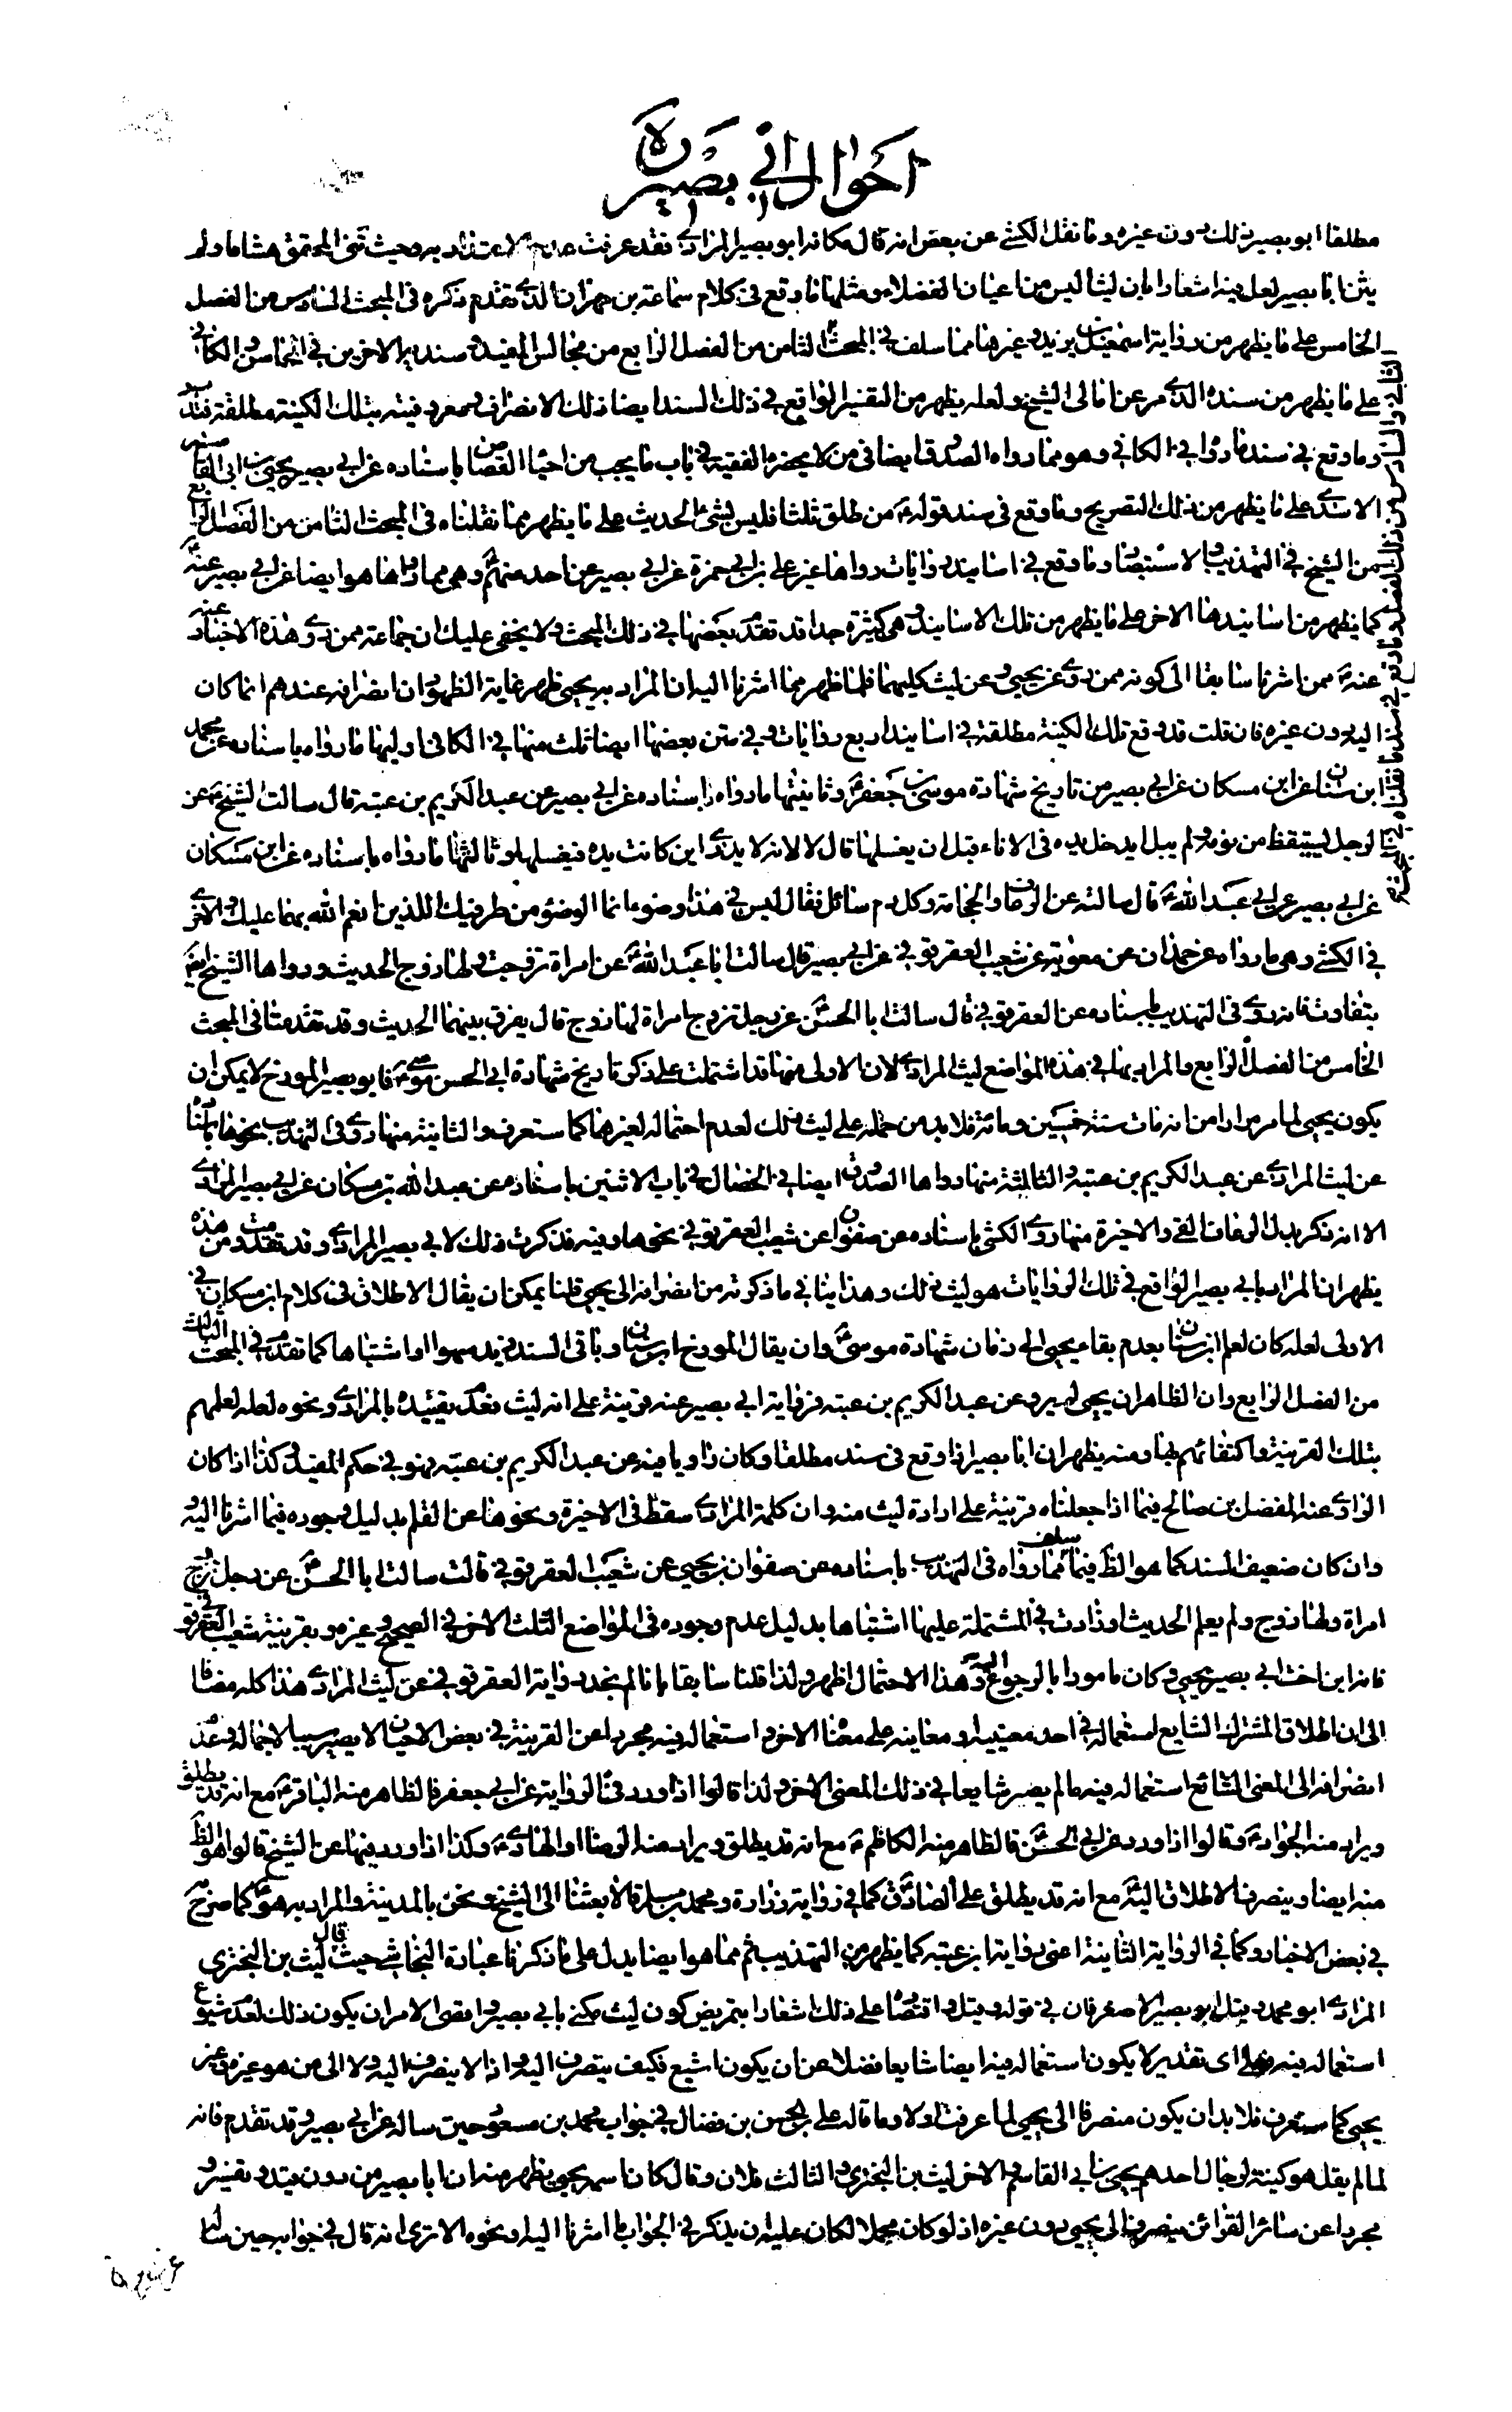 احوال ابي بصير
مطلقا ابو بصير ذلك دون غيره وما نقل الكشي عن بعض انه قال مكانه ابو بصير المرادي فقد عرفت عدم الاعتداد به وحيث ثنى المحقق هشاما ولم
يثن ابا بصير لعل فيه اشعارا بان ليثا ليس من اعيان الفضلاء ومثلها ما وقع في كلام سماعة بن مهران الذي تقدم ذكره في المبحث السادس من الفصل
الخامس على ما يظهر من رواية اسمعيل بن يزيد وغيرها مما سلف في المبحث الثامن من الفصل الرابع من مجالس المفيد وسنديه الاخرين في المحاسن والكافي
على ما يظهر من سنده الذي مر عن امالي الشيخ ولعله يظهر من التفسير الواقع في ذلك السند ايضا ذلك الانصراف ومعروفيته بتلك الكنية مطلقة فتدبر
وما وقع في سند ما رواه في الكافي وهو مما رواه الصدوق ايضا في من لا يحضره الفقيه في باب ما يجب من احياء القصاص باسناده عن ابي بصير يحيى بن ابي القاسم
الاسدي على ما يظهر من ذلك التصريح وما وقع في سند قوله ع من طلق ثلثا فليس بشيء الحديث على ما يظهر مما نقلناه في المبحث الثامن من الفصل الرابع
من الشيخ في التهذيب والاستبصار وما وقع في اسانيد روايات رواها غير علي بن ابي حمزة عن ابي بصير عن احد منهم وهي مما رواها هو ايضا عن ابي بصير عنه
كما يظهر من اسانيدها الاخر على ما يظهر من تلك الاسانيد وهي كثيرة جدا قد تقدم بعضها في ذلك المبحث ولا يخفى عليك ان جماعة ممن روى هذه الاخبار عنه
عنه ع ممن اشرنا سابقا الى كونه ممن روى عن يحيى وعن ليث كليهما فلما ظهر مما اشرنا اليه ان المراد به يحيى ظهر غاية الظهور ان انصرافه عندهم انما كان
اليه دون غيره فان قلت قد وقع تلك الكنية مطلقة في اسانيد اربع روايات وفي متن بعضها ايضا ثلث منها في الكافي اوليها ما رواه باسناده عن محمد
ابن سنان عن ابن مسكان عن ابي بصير من تاريخ شهادة موسى بن جعفر ع وثانيتها ما رواه باسناده عن ابي بصير عن عبد الكريم بن عتبة قال سالت الشيخ ع عن
الرجل يستيقظ من نومه ولم يبل ايدخل يده في الاناء قبل ان يغسلها قال لا لانه لا يدري اين كانت يده فيغسلها وثالثتها ما رواه باسناده عن ابن مسكان
عن ابي بصير عن ابي عبد الله ع قال سالته عن الرعاف والحجامة وكل دم سائل فقال ليس في هذا وضوء انما الوضوء من طرفيك اللذين انعم الله بهما عليك والاخرى
في الكشي وهي ما رواه عن حمدان عن معوية عن شعيب العقرقوفي عن ابي بصير قال سالت ابا عبد الله ع عن امراة تزوجت ولها زوج الحديث ورواها الشيخ ايضا
بتفاوت فانه روى في التهذيب باسناده عن العقرقوفي قال سالت ابا الحسن ع عن رجل تزوج امراة لها زوج قال يفرق بينهما الحديث وقد تقدمتا في المبحث
الخامس من الفصل الرابع والمراد بها في هذه المواضع ليث المرادي لان الاولى منها قد اشتملت على ذكر تاريخ شهادة ابي الحسن موسى ع فابو بصير المورخ لا يمكن ان
يكون يحيى لما مر مرارا من انه مات سنة خمسين ومائة فلا بد من حمله على ليث ذلك لعدم احتماله لغيرهما كما ستعرف والثانية منها روى في التهذيب نحوها باسناده
عن ليث المرادي عن عبد الكريم بن عتبة والثالثة منها رواها الصدوق ايضا في الخصال في باب الاثنين باسناده عن عبد الله بن مسكان عن ابي بصير المرادي
الا انه ذكر بدل الرعاف القيء والاخيرة منها روى الكشي باسناده عن صفوان عن شعيب العقرقوفي نحوها وفيه فذكرت ذلك لابي بصير المرادي وقد تقدمت ومن هذه
يظهر ان المراد بابي بصير الواقع في تلك الروايات هو ليث ذلك وهذا ينافي ما ذكرته من انصرافه الى يحيى قلنا يمكن ان يقال الاطلاق في كلام ابن مسكان في
الاولى لعله كان لعلم ابن سنان بعدم بقاء يحيى الى زمان شهادة موسى ع وان يقال المورخ ابن سنان وباقي السند زيد سهوا او اشتباها كما تقدم في المبحث الثالث
من الفصل الرابع وان الظاهر ان يحيى لم يرو عن عبد الكريم بن عتبة فرواية ابي بصير عنه قرينة على انه ليث فعدم تقييده بالمرادي ونحوه لعله لعلمهم
بتلك القرينة واكتفائهم بها ومنه يظهر ان ابا بصير اذا وقع في سند مطلقا وكان راويا فيه عن عبد الكريم بن عتبة فهو في حكم المقيد وكذا اذا كان
الراوي عنه المفضل بن صالح فيما اذا جعلناه قرينة على ارادة ليث منه وان كلمة المرادي سقط في الاخيرة ونحوها عن القلم بدليل وجوده فيما اشرنا اليه
وان كان ضعيف السند كما هو الظ فيما سلف مما رواه في التهذيب باسناده عن صفوان بن يحيى عن شعيب العقرقوفي قالت سالت ابا الحسن ع عن رجل تزوج
امراة ولها زوج ولم يعلم الحديث او زادت في المشتملة عليها اشتباها بدليل عدم وجوده في المواضع الثلث الاخر في الصحيح وغيره وبقرينة شعيب العقرقوفي
فانه ابن اخت ابي بصير يحيى وكان مامورا بالرجوع اليه وهذا الاحتمال اظهر ولذا قلنا سابقا بانا لم نجد رواية العقرقوفي عن ليث المرادي هذا كله مضافا
الى ان اطلاق المشترك الشايع استعماله في احد معنييه او معانيه على معناه الاخر او استعماله فيه مجردا عن القرينة في بعض الاحيان لا يصير سببا لاجماله وعدم
انصرافه الى المعنى الشائع استعماله فيه ما لم يصر شايعا في ذلك المعنى الاخر ولذا قالوا اذا ورد في الرواية عن ابي جعفر فالظاهر منه الباقر ع مع انه قد يطلق
ويراد منه الجواد ع وقالوا اذا ورد عن ابي الحسن ع فالظاهر منه الكاظم ع مع انه قد يطلق ويراد منه الرضا او الهادي ع وكذا اذا ورد فيها عن الشيخ قالوا هو الظ
منه ايضا وينصرف الاطلاق اليه ع مع انه قد يطلق على الصادق ع كما في رواية زرارة ومحمد بن مسلم قالا بعثنا الى الشيخ ونحن بالمدينة والمراد به هو ع كما صرح به
في بعض الاخبار وكما في الرواية الثانية اعني رواية ابن عتبة كما يظهر من التهذيب ثم مما هو ايضا يدل على ما ذكرنا عبارة النجاشي حيث قال ليث بن البختري
المرادي ابو محمد وقيل ابو بصير الاصغر فان في قوله وقيل واقتصاره على ذلك اشعارا بتمريض كون ليث مكنى بابي بصير واقصى الامر ان يكون ذلك لعدم شيوع
استعماله فيه وعلى اى تقدير لا يكون استعماله فيه ايضا شايعا فضلا عن ان يكون اشيع فكيف ينصرف اليه واذا لا ينصرف اليه ولا الى من هو غيره وغير
يحيى كما ستعرف فلا بد ان يكون منصرفا الى يحيى لما عرفت اولا وما قاله علي بن الحسن بن فضال في جواب محمد بن مسعود حين ساله عن ابي بصير وقد تقدم فانه
لما لم يقل هو كنية لرجال احدهم يحيى بن ابي القاسم والاخر ليث بن البختري والثالث فلان وقال كان اسمه يحيى يظهر منه ان ابا بصير من دون قيد وتفسير و
مجردا عن سائر القرائن ينصرف الى يحيى دون غيره اذ لو كان مجملا لكان عليه ان يذكر في الجواب ما اشرنا اليه او نحوه الا ترى انه قال في جوابه حين ساله